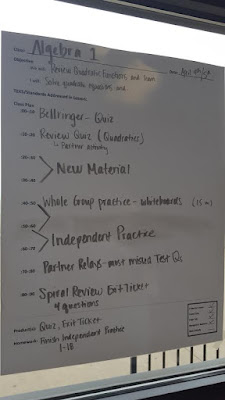 Class: Algebra 1
Objective:
Review Quadratic Functions, and learn
Solve quadratic equations and
TEKS/Standards Addressed in Lesson:
Class Plan
Bellringer - Quiz
Review Quiz (Quadratics)
↳ Partner activity
New Material
Whole Group practice - Whiteboards (15 m)
Independent Practice
Partner Relays - most missed Test Qs
Spiral Review Exit Ticket
4 questions
Product(s): Quiz, Exit Ticket
Homework: Finish Independent Practice
1-18